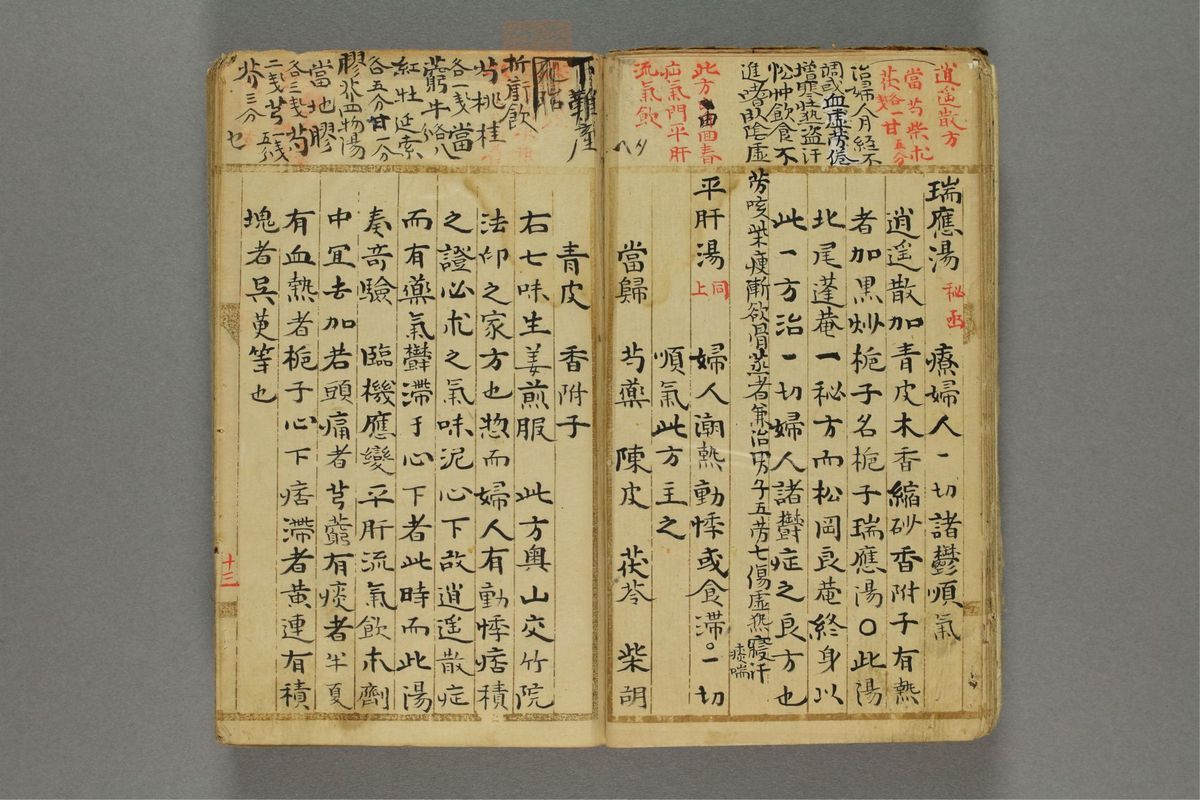 逍遥散方
當芍柴朮
茯各一甘五分
治婦人月経不
調或血虚労倦
増寒熱盗汗
忪忡飲食不
進嗜臥陰虚
労咳柴痩漸欲骨蒸者兼治男子五労七傷虚熱寝汗
痰喘
此方由酉春
疝氣門平肝
流氣飲
瑞應湯 秘函 療婦人一切諸鬱順氣
逍遥散加青皮木香縮砂香附子有熱
者加黒炒梔子名梔子瑞應湯〇此湯
北尾蓬菴一秘方而松岡良菴終身以
此一方治一切婦人諸鬱症之良方也
平肝湯 同上 婦人潮熱動悸或食滞。一切
順氣此方主之
當歸 芍藥 陳皮 茯苓 柴胡
下難産
折前飲
芍桃桂
各一戔當
藭牛各八
紅牡延索
各五分甘一分
膠艾四物湯
當地膠
各三戔芍
二戔芎一戔
芥三分也
青皮 香附子
右七味生姜煎服 此方奥山交竹院
法印之家方也惣而婦人有動悸痞積
之證必求之氣味泥心下故逍遥散症
而有藥氣鬱滞于心下者此時而此湯
奏竒驗 臨機應變平肝流氣飲木劑
中冝去加若頭痛者芎藭有痰者半夏
有血熱者梔子心下痞滞者黄連有積
塊者呉茰等也
十三